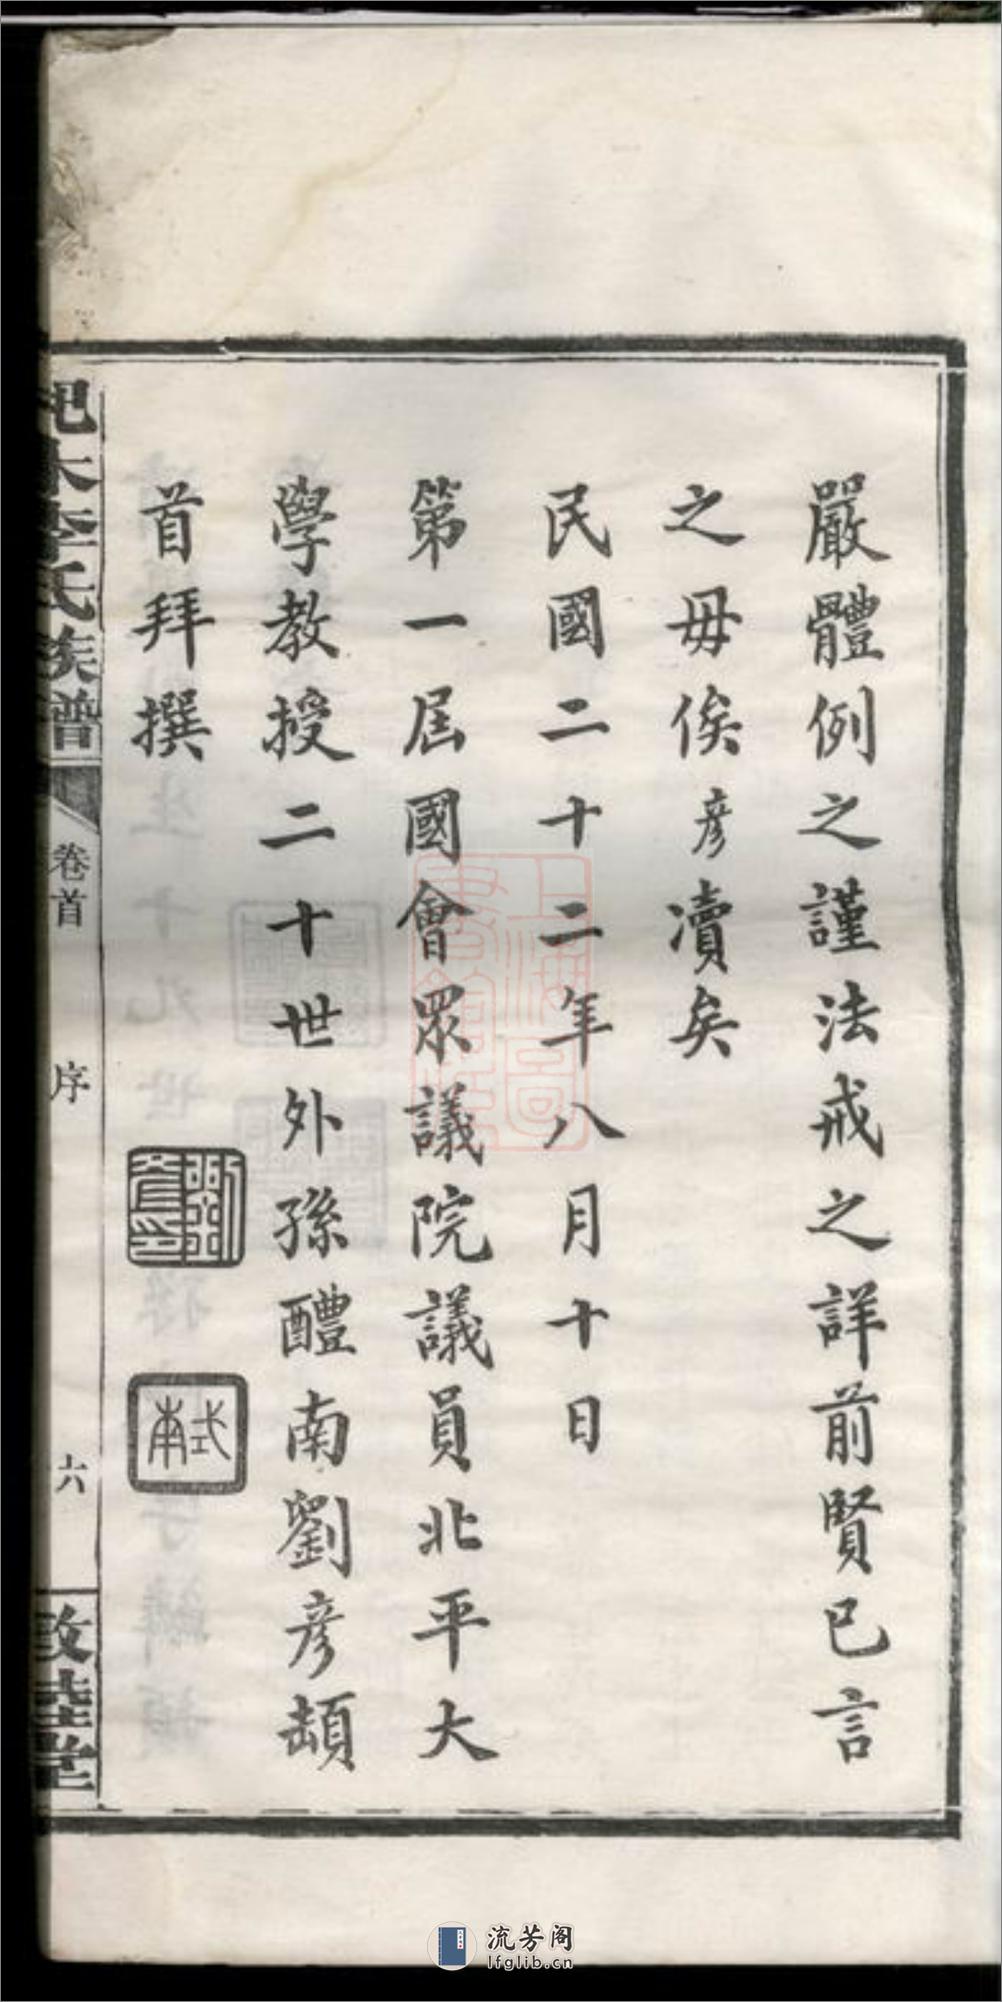 嚴體例之謹法戒之詳前賢已言
之毋俟彥瀆矣
民國二十二年八月十日
第一屆國會眾議院議員北平大
學教授二十世外孫醴南劉彥頡
首拜撰
李氏族譜
卷首
序
六
堂
上海圖書館藏
流芳阁
lfglib.cn